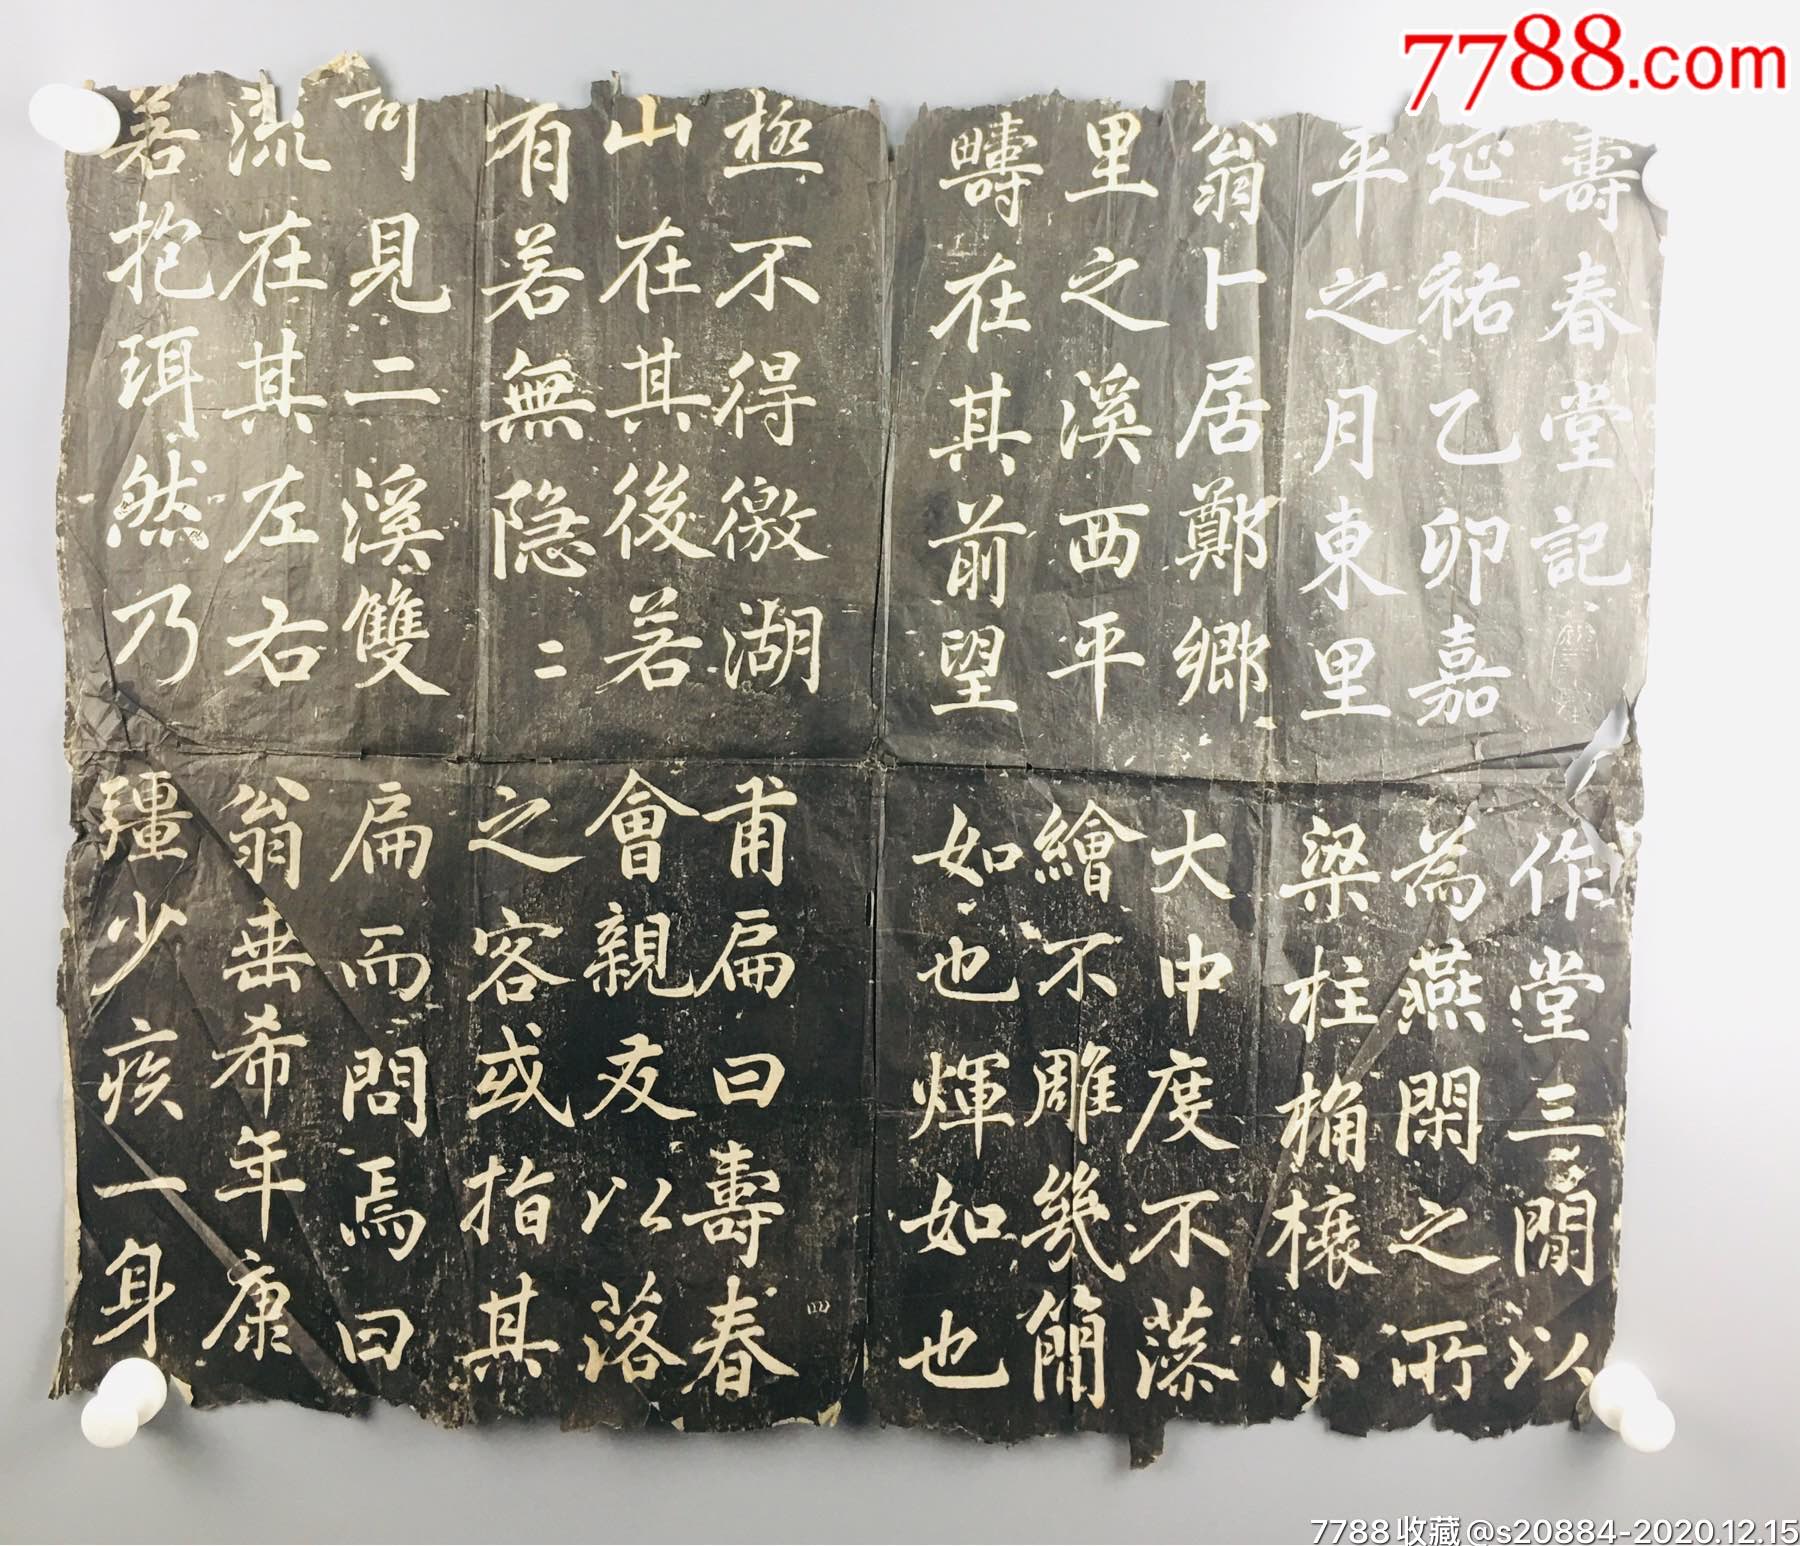 7788.com
壽春堂記
延祐乙卯嘉
平之月東里
翁卜居鄭鄉
里之溪西平
疇在其前望
極不得徼湖
山在其後若
有若無隱〻
可見二溪雙
流在其左右
若抱珥然乃
作堂三間以
為燕閑之所
梁柱桷欀小
大中度不藻
繪不雕幾簡
如也輝如也
甫扁曰壽春
會親友以落
之客或指其
扁而問焉曰
翁垂希年康
疆少疾一身
7788收藏@s20884-2020.12.15